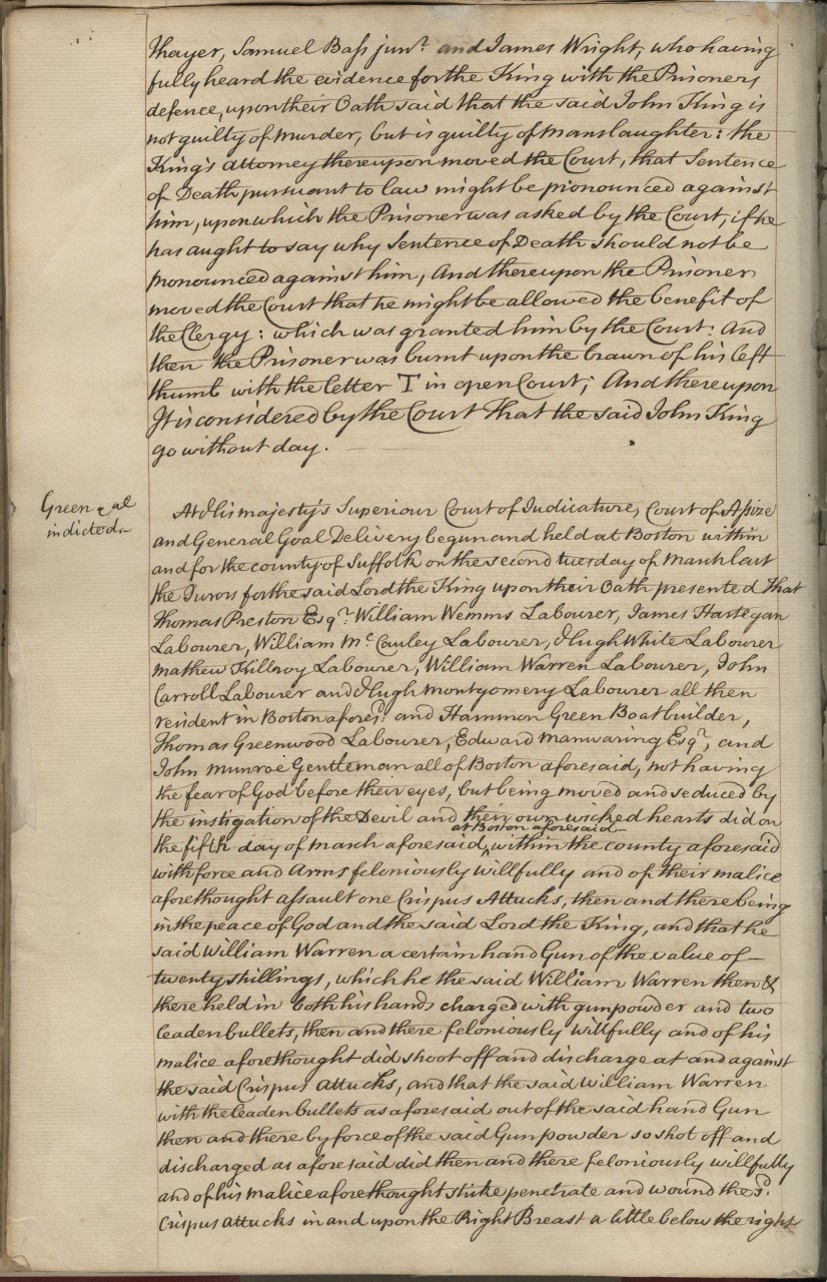 Thayer, Samuel Bass junr. and James Wright, who having
fully heard the evidence for the King with the Prisoners
defence, upon their Oath said that the said John King is
not guilty of murder, but is guilty of manslaughter: the
King's attorney thereupon moved the Court, that Sentence
of Death pursuant to law might be pronounced against
him, upon which the Prisoner was asked by the Court, if he
has aught to say why Sentence of Death should not be
pronounced against him, And thereupon the Prisoner
moved the Court that he might be allowed the benefit of
the Clergy: which was granted him by the Court: And
then the Prisoner was burnt upon the brawn of his left
thumb with the letter T in open Court; And thereupon
It is considered by the Court That the said John King
go without day.
Green & al
indicted.
At His majesty's Superiour Court of Judicature, Court of Assize
and General Goal Delivery begun and held at Boston within
and for the county of Suffolk on the second tuesday of March last
the Jurors for the said Lord the King upon their Oath presented That
Thomas Preston Esqr. William Wemms Labourer, James Hartegan
Labourer, William Mc.Cauley Labourer, Hugh White Labourer
Mathew Killroy Labourer, William Warren Labourer, John
Carroll Labourer and Hugh Montgomery Labourer all then
resident in Boston aforesd. and Hammon Green Boatbuilder,
Thomas Greenwood Labourer, Edward Manwaring Esqr, and
John Munroe Gentleman all of Boston aforesaid, not having
the fear of God before their eyes, but being moved and seduced by
the instigation of the Devil and their own wicked hearts did on
at Boston aforesaid
the fifth day of March aforesaid, ^ within the county aforesaid
with force and Arms feloniously willfully and of their malice
aforethought assault one Crispus Attucks, then and there being
in the peace of God and the said Lord the King, and that he
said William Warren a certain hand Gun of the value of
twenty shillings, which he the said William Warren then &
there held in both his hands charged with gunpowder and two
leaden bullets, then and there feloniously willfully and of his
malice aforethought did shoot off and discharge at and against
the said Crispus Attucks, and that the said William Warren
with the leaden bullets as aforesaid out of the said hand Gun
then and there by force of the said Gun powder so shot off and
discharged as aforesaid did then and there feloniously willfully
and of his malice aforethought strike penetrate and wound the sd.
Crispus Attucks in and upon the Right Breast a little below the right